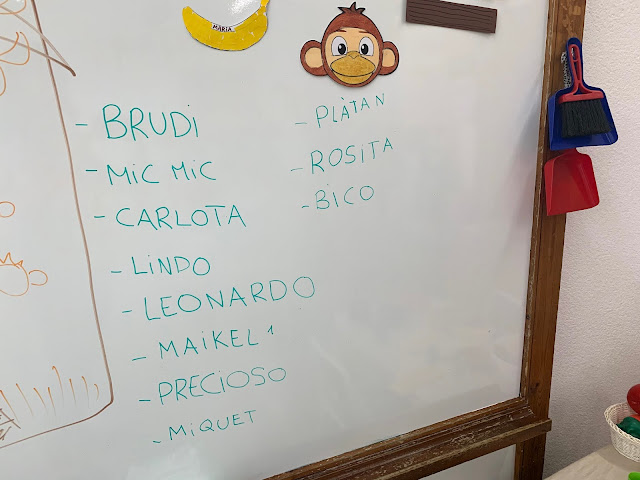 MARIA
- BRUDi
- MiC MiC
- CARLOTA
- LiNDO
- LEONARDO
- MAiKEL 1
- PRECiOSO
- MiQUET
- PLÀTAN
- ROSiTA
- BiCO